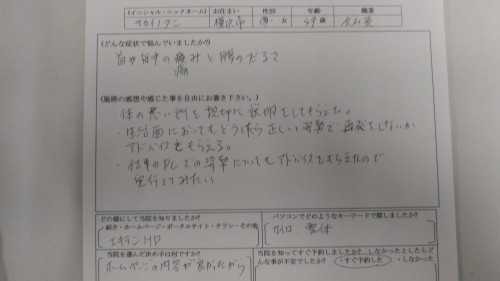 (イニシャル・ニックネーム) お住まい 性別 年齢 職業
サカイノタニ 横浜市 男・女 49歳 会社員
(どんな症状で悩んでいましたか?)
首や背中の痛みと腰のだるさ
痛
(施術の感想や感じた事を自由にお書き下さい。)
・体の悪い所を親切に説明をしてもらえた。
・生活面においてもどうしたら正しい姿勢で再発をしないか
アドバイスをもらえる。
・仕事のPCでの姿勢についてもアドバイスをもらえたので
実行してみたい
どの様にして当院を知りましたか? パソコンでどのようなキーワードで探しましたか?
紹介・ホームページ・ポータルサイト・チラシ・その他
エキテンHP
整体
当院を選んだ決め手は何ですか? 当院を知ってすぐ予約しましたか? しなかったとしたらど
んな事が不安でしたか? ・すぐ予約した ・しなかった
ホームページの内容が良かたから